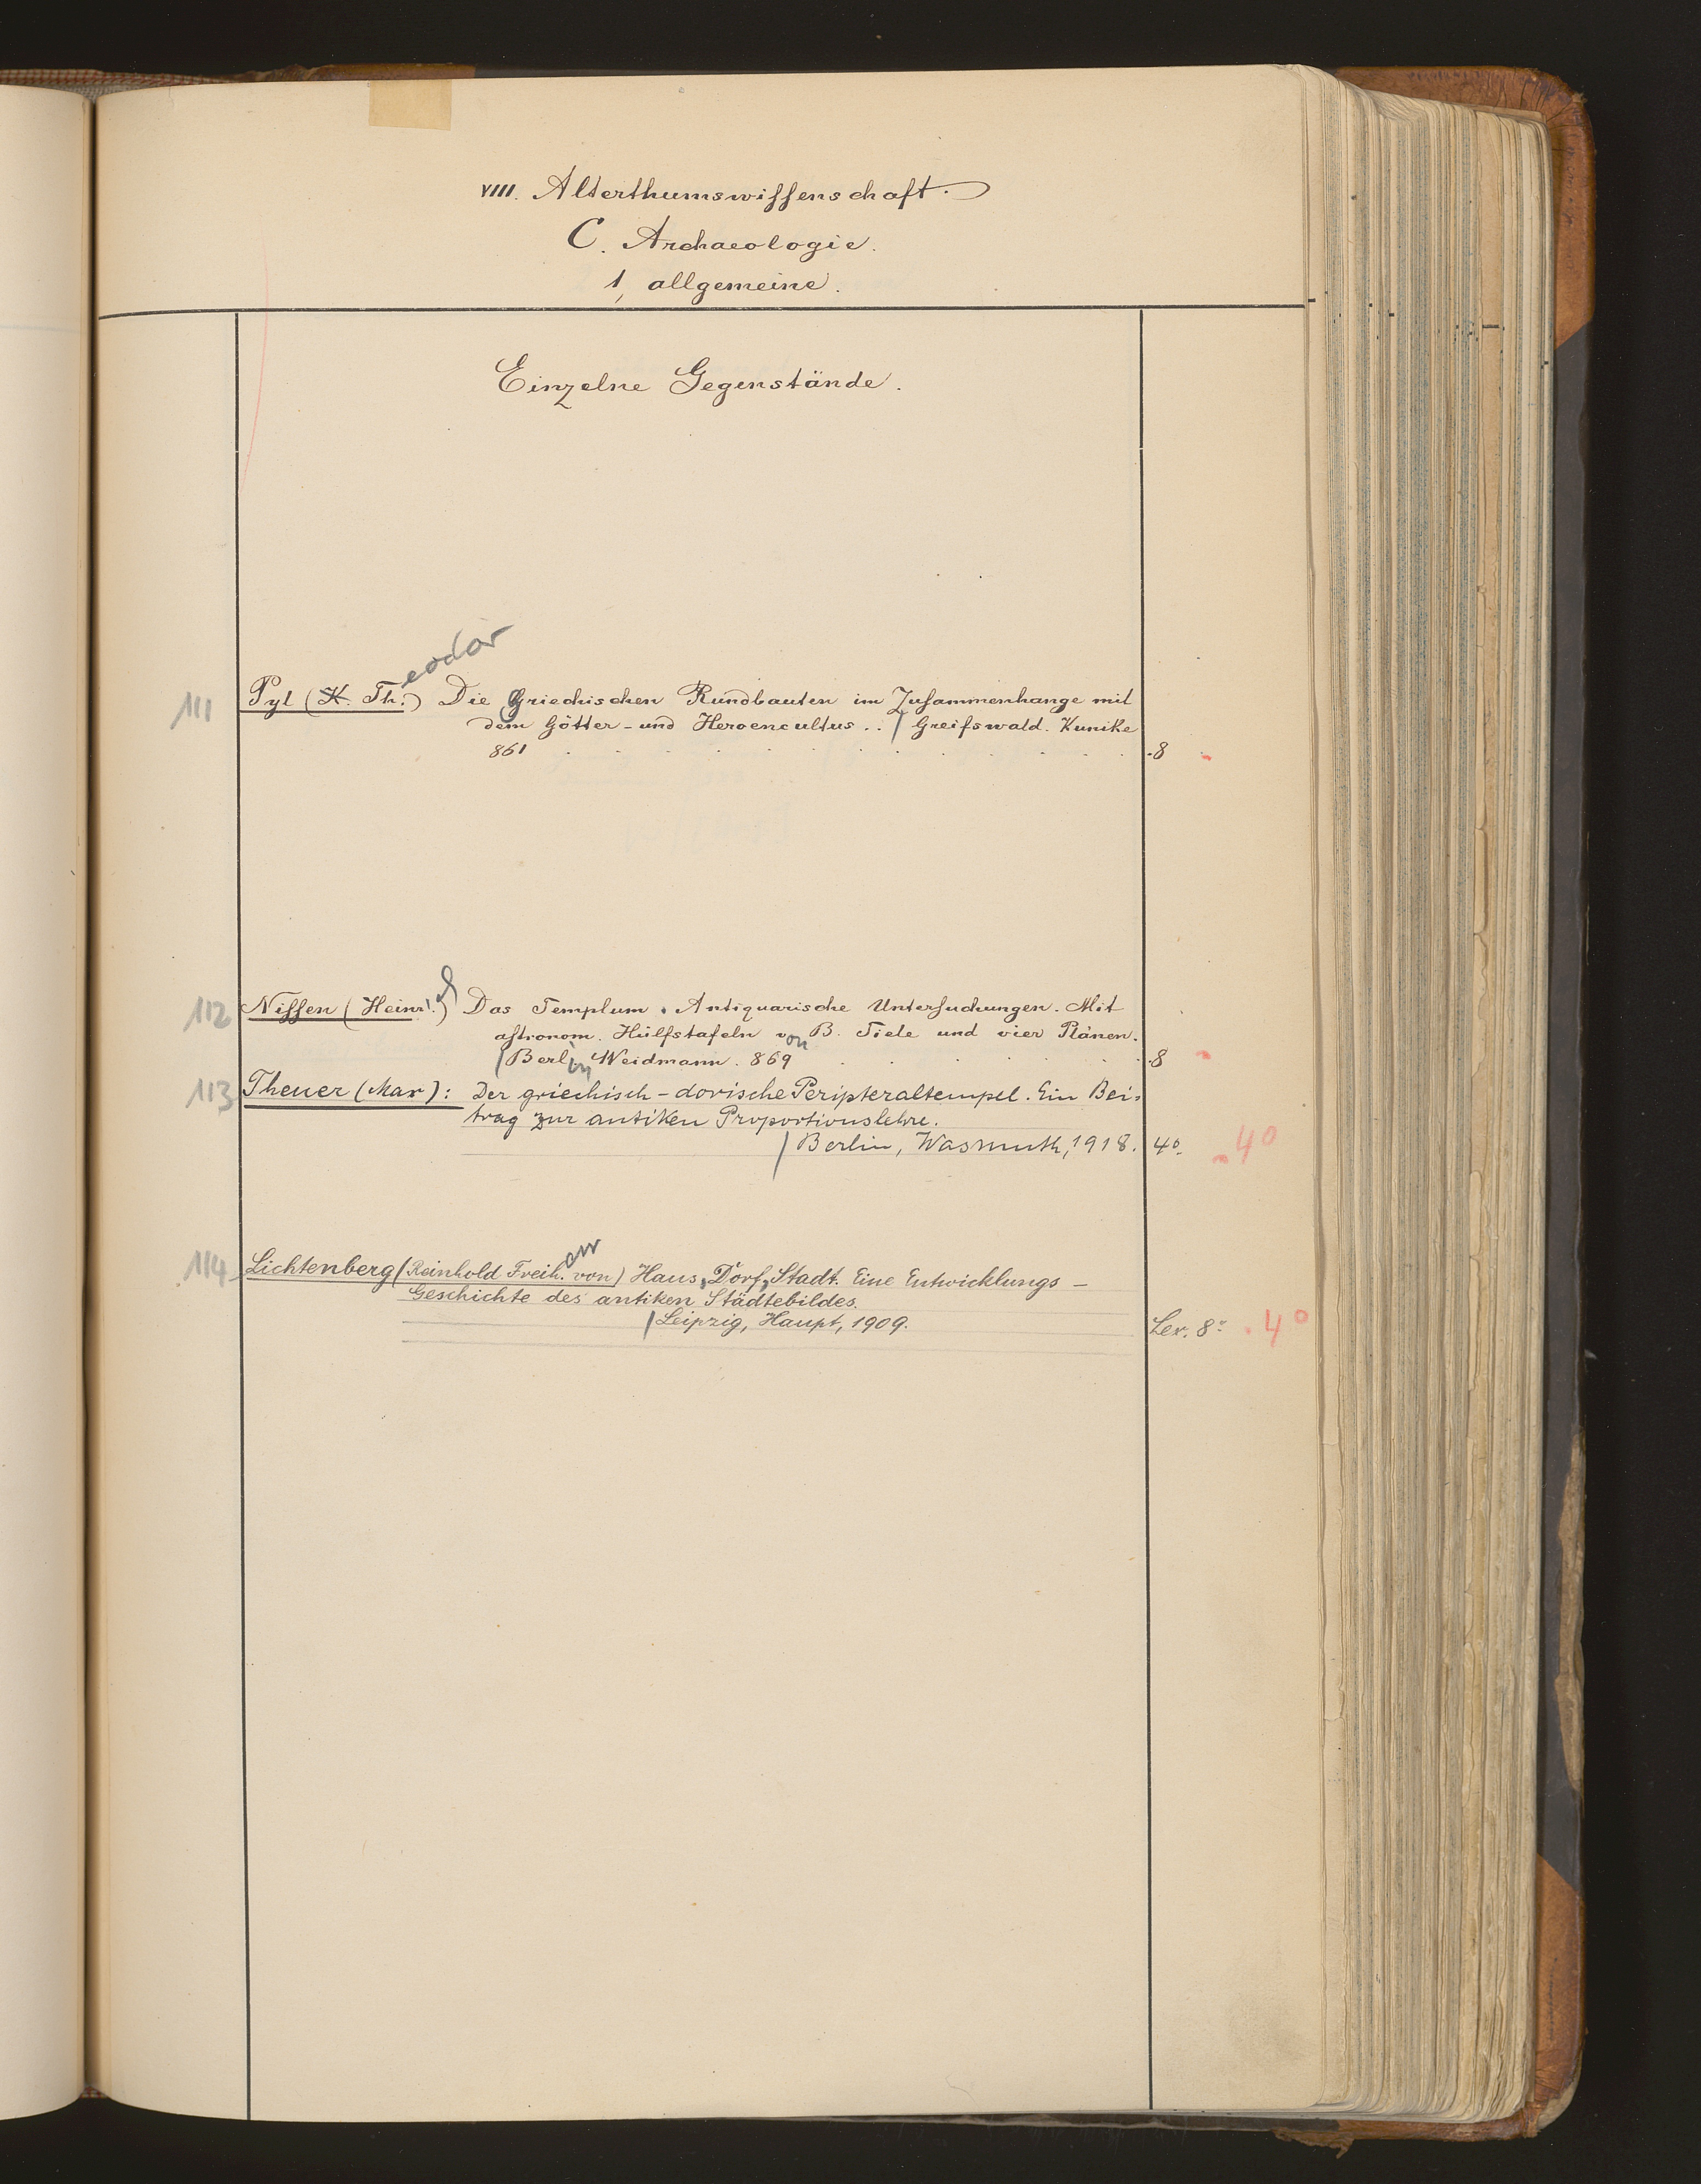 VIII. Alterthumswissenschaft.
C. Archaeologie.
1, allgemeine.
Einzelne Gegenstände.
eodor
111 Pyl (K. Th.) Die Griechischen Rundbauten im Zusammenhange mit
dem Götter- und Heroencultus .. / Greifswald. Kunike
861 . . . . . . . . . . . . 8
112 Nissen (Heinr.ch) Das Templum. Antiquarische Untersuchungen. Mit
astronom. Hülfstafeln von B. Tiele und vier Plänen.
/ Berlin Weidmann. 869 . . . . . . . 8
113 Theuer (Max): Der griechisch-dorische Peripteraltempel. Ein Bei-
trag zur antiken Proportionslehre.
/ Berlin, Wasmuth, 1918. 4°. 4°
err
114 Lichtenberg (Reinhold Freih. von) Haus, Dorf, Stadt. Eine Entwicklungs-
Geschichte des antiken Städtebildes.
/ Leipzig, Haupt, 1909. Lex. 8° 4°